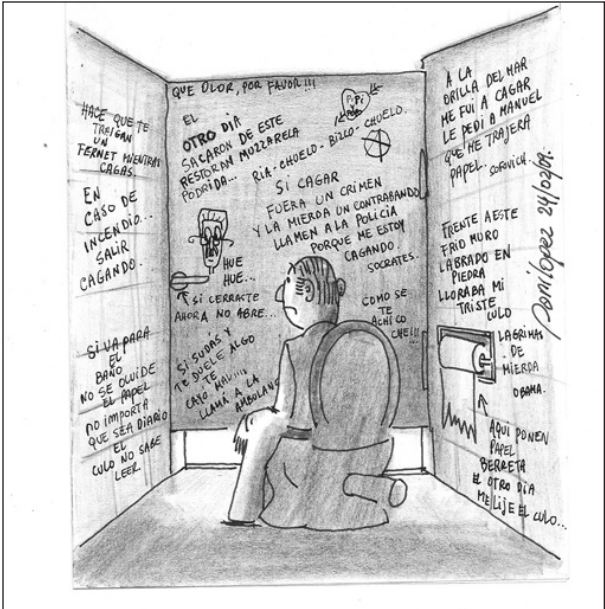 HACE QUE TE
TRAIGAN
UN
FERNET MIENTRAS
CAGAS.
EN
CASO DE
INCENDIO...
SALIR
CAGANDO.
SI VA PARA
EL
BAÑO
NO SE OLVIDE
EL PAPEL
NO IMPORTA
QUE SEA DIARIO
EL
CULO NO SABE
LEER.
QUE OLOR, POR FAVOR!!!
EL
OTRO DIA
SACARON DE ESTE
RESTORAN MOZZARELA
PODRIDA...
PIPI
RIA-CHUELO-BIZCO-CHUELO.
SI CAGAR
FUERA UN CRIMEN
Y LA MIERDA UN CONTRABANDO
LLAMEN A LA POLICIA
PORQUE ME ESTOY
CAGANDO
SOCRATES.
HUE
HUE...
SI CERRASTE
AHORA NO ABRE...
COMO SE
TE
ACHICO
CHE!!!
SI SUDÁS Y
TE DUELE ALGO
TE
CAYO MAL!!!!
LLAMÁ A LA
AMBULANC
A LA
ORILLA DEL MAR
ME FUI A CAGAR
LE PEDI A MANUEL
QUE ME TRAJERA
PAPEL. SOFOVICH.
FRENTE A ESTE
FRIO MURO
LABRADO EN
PIEDRA
LLORABA MI
TRISTE
CULO
LAGRIMAS
DE
MIERDA
OBAMA.
AQUI PONEN
PAPEL
BERRETA
EL OTRO DIA
ME LIJE EL CULO...
Danilopez 24/02/09.